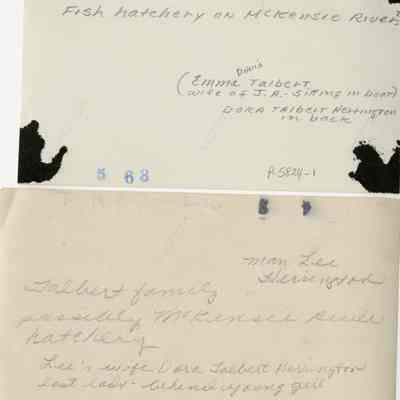 Fish hatchery on McKensie River?
Davis
(Emma Talbert
(wife of J.A. - sitting in boat)
Dora Talbert Herrington
in back
5 68
P-5824-1
man Lee
Herrington
Talbert family
possibly McKensie River
hatchery
Lee's wife Dora Talbert Herrington
last lady - behind young girl